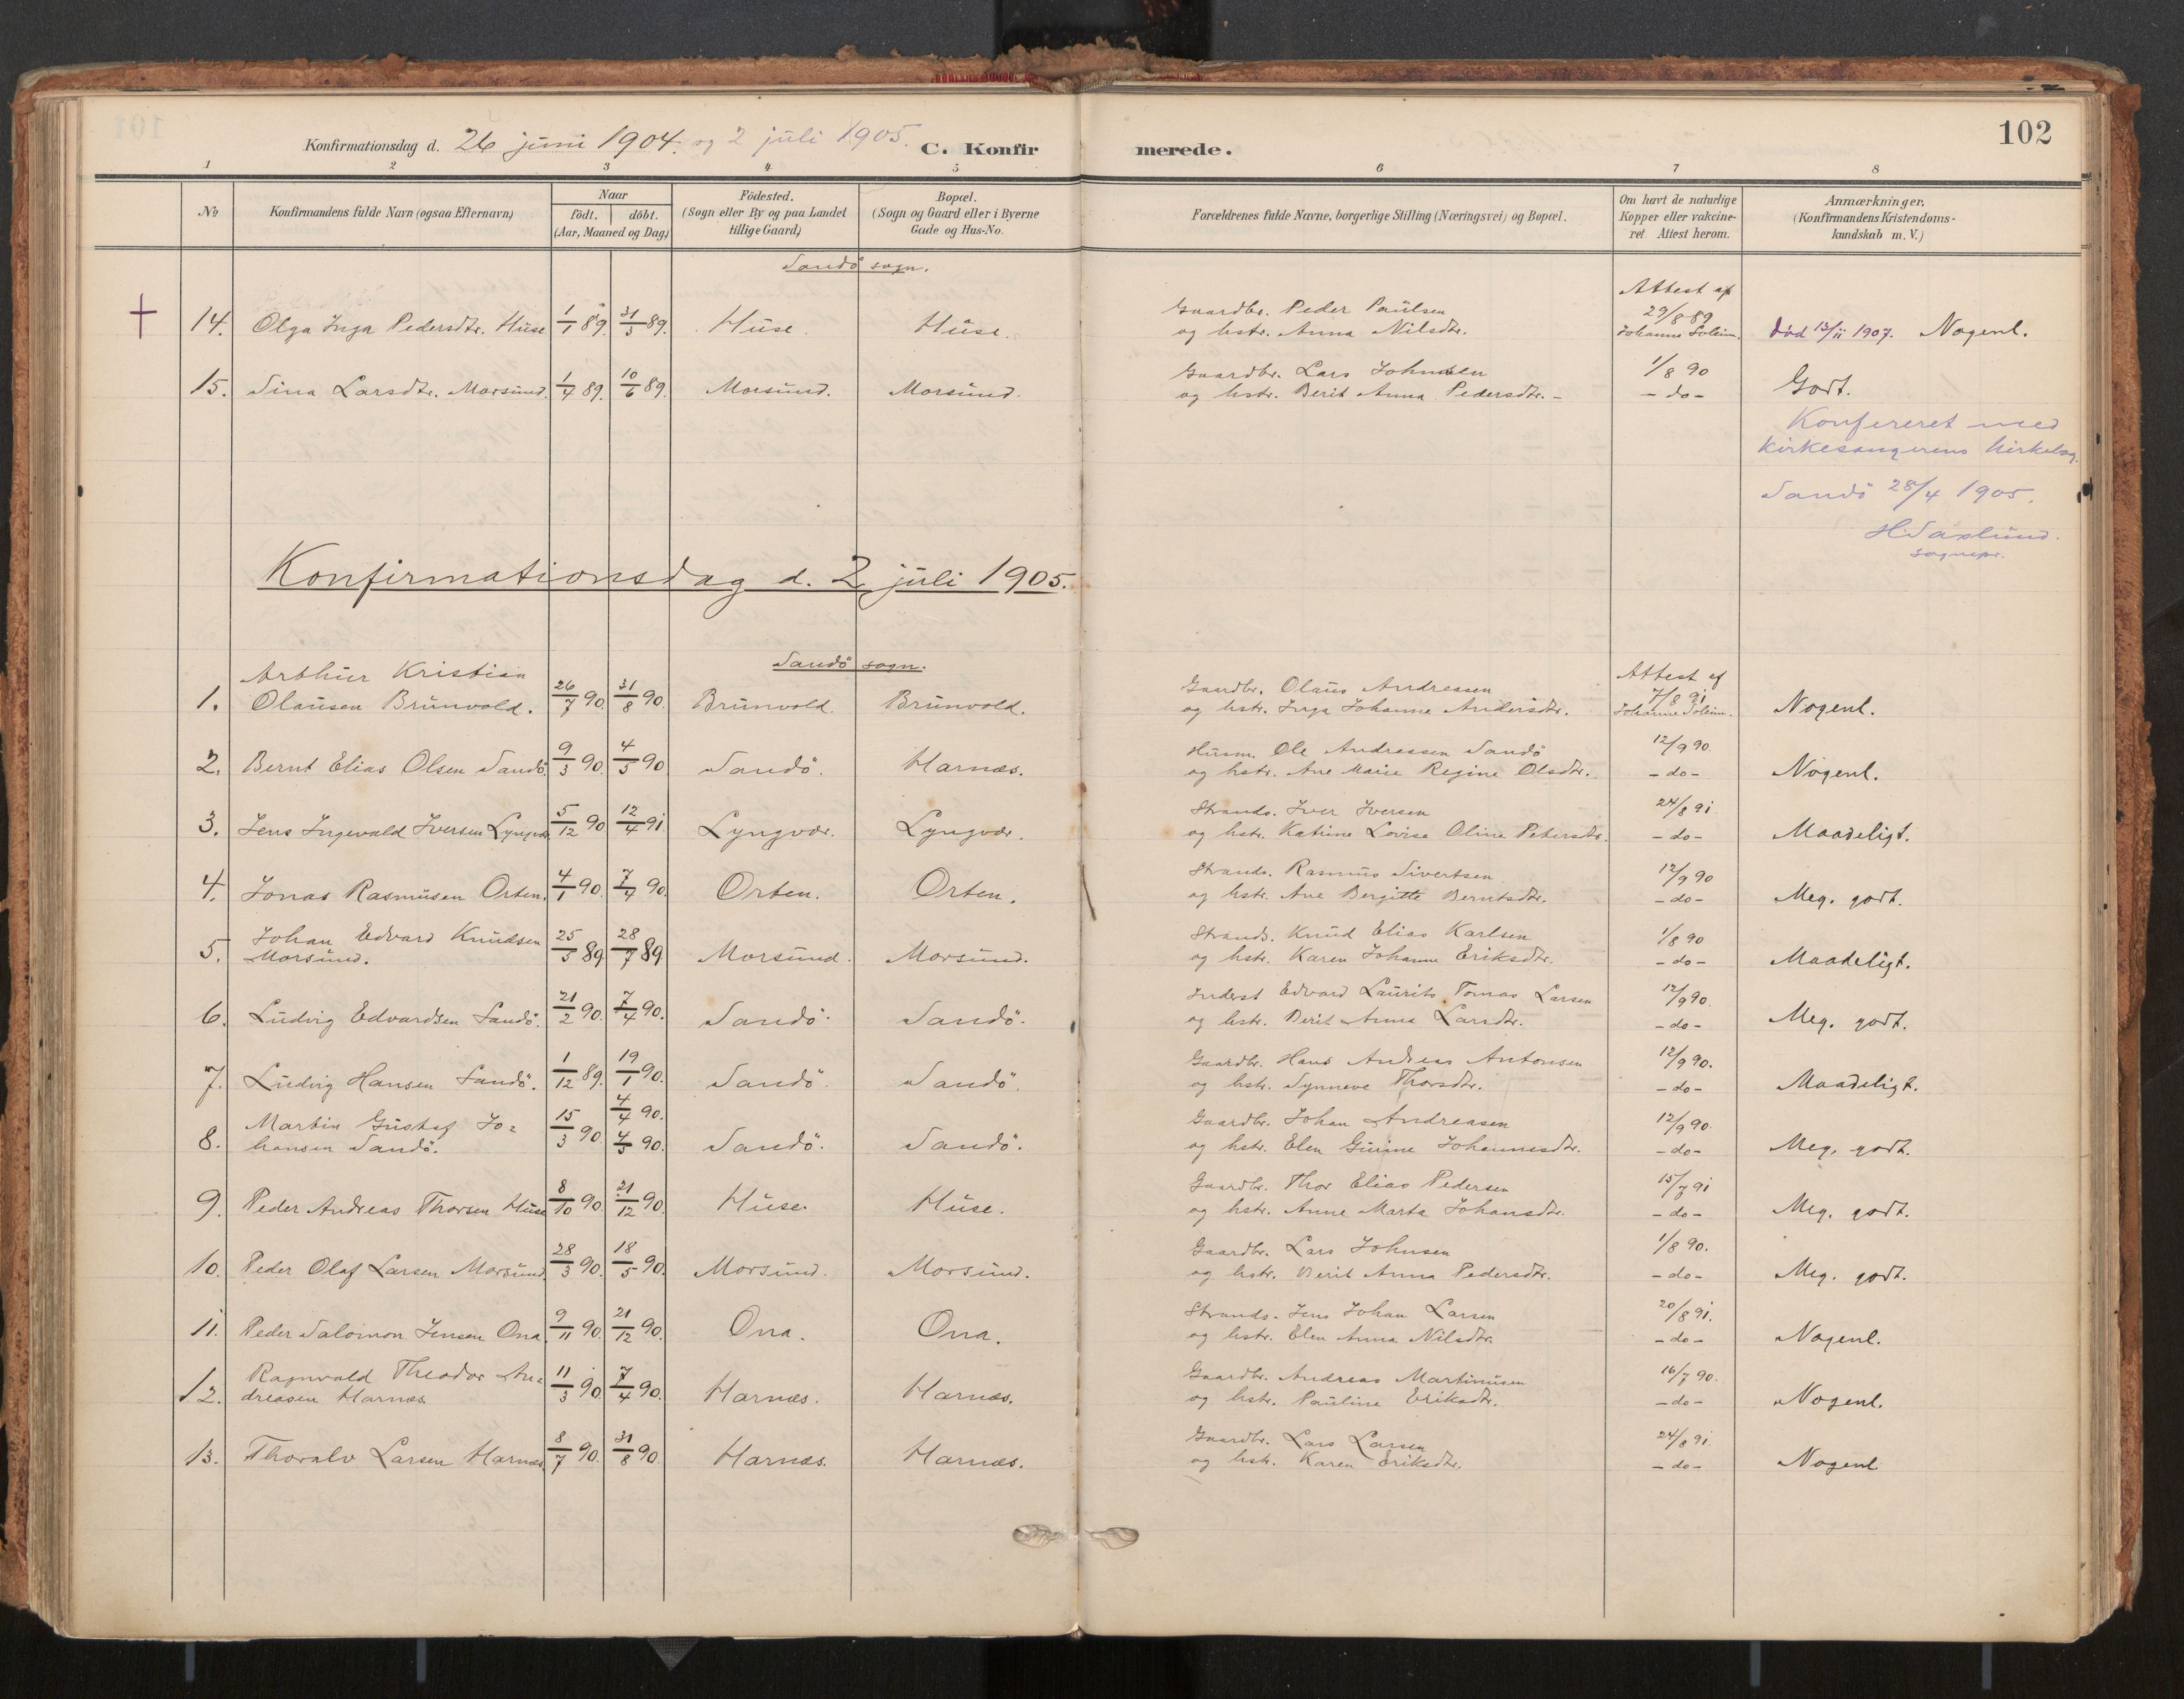 102
Konfirmationsdag d. 26 juni 1904. og 2 juli 1905. C. Konfirmerede.
1 2 3 4 5 6 7 8
No
Konfirmandens fulde Navn (ogsaa Efternavn)
Naar
födt. | döbt.
(Aar, Maaned og Dag)
Födested.
(Sogn eller By og paa Landet
tillige Gaard)
Bopæl.
(Sogn og Gaard eller i Byerne
Gade og Hus-No.
Forældrenes fulde Navne, borgerlige Stilling (Næringsvei) og Bopæl.
Om havt de naturlige
Kopper eller vakcine-
ret. Attest herom.
Anmærkninger,
(Konfirmandens Kristendoms-
kundskab m. V.)
Sandö sogn.
Attest af
14. Olga Inga Pedersdtr. Huse 1/1 89. 31/3 89. Huse. Huse. Gaardbr. Peder Paulsen
og hstr. Anna Nilsdtr. 29/8 89 Johanne Soleim. død 13/11 1907. Nogenl.
15. Sina Larsdtr. Morsund. 1/4 89. 10/6 89. Morsund. Morsund. Gaardbr. Lars Johnsen
og hstr. Berit Anna Pedersdtr. - 1/8 90 - do - Godt.
Konfereret med
kirkesangerens kirkebog.
Sandö 28/4 1905.
H. Saxlund.
sognepr.
Konfirmationsdag d. 2 juli 1905.
Sandö sogn.
Attest af
1. Arthur Kristian
Olausen Brunvold. 26/7 90. 31/8 90. Brunvold. Brunvold. Gaardbr. Olaus Andreasen
og hstr. Inga Johanne Andersdtr. 7/8 91 Johanne Soleim. Nogenl.
2. Bernt Elias Olsen Sandö. 9/3 90. 4/5 90 Sandö. Harnæs. Husm. Ole Andreasen Sandö
og hstr. Ane Marie Regine Olsdtr. 12/9 90. - do - Nogenl.
3. Jens Ingevald Iversen Lyngvær 5/12 90 12/4 91. Lyngvær. Lyngvær. Strands. Iver Iversen
og hstr. Katrine Lovise Oline Petersdtr. 24/8 91 - do - Maadeligt.
4. Jonas Rasmusen Orten. 4/1 90. 7/4 90. Orten. Orten. Strands. Rasmus Sivertsen
og hstr. Ane Bergitte Berntsdtr. 12/9 90 - do - Meg. godt.
5. Johan Edvard Knudsen
Morsund. 25/5 89 28/7 89 Morsund. Morsund. Strands. Knud Elias Karlsen
og hstr. Karen Johanne Eriksdtr. 1/8 90 - do - Maadeligt.
6. Ludvig Edvardsen Sandö. 21/2 90. 7/4 90. Sandö. Sandö. Inderst Edvard Laurits Tomas Larsen
og hstr. Berit Anna Larsdtr. 12/9 90. - do - Meg. godt.
7. Ludvig Hansen Sandö. 1/12 89. 19/1 90. Sandö. Sandö. Gaardbr. Hans Andreas Antonsen
og hstr. Synneve Thorsdtr. 12/9 90. - do - Maadeligt.
8. Martin Gustaf Jo=
hansen Sandö. 15/3 90. 4/4 90. 4/5 90. Sandö. Sandö. Gaardbr. Johan Andreasen
og hstr. Elen Gurine Johannesdtr. 12/9 90. - do - Meg. godt.
9. Peder Andreas Thorsen Huse 8/10 90. 21/12 90. Huse. Huse. Gaardbr. Thor Elias Pedersen
og hstr. Anne Marta Johansdtr. 15/7 91 - do - Meg. godt.
10. Peder Olaf Larsen Morsund. 28/3 90. 18/5 90. Morsund. Morsund. Gaardbr. Lars Johnsen
og hstr. Berit Anna Pedersdtr. 1/8 90. - do - Meg. godt.
11. Peder Salomon Jensen Ona. 9/11 90. 21/12 90. Ona. Ona. Strands. Jens Johan Larsen
og hstr. Elen Anna Nilsdtr. 20/8 91. - do - Nogenl.
12. Ragnvald Theodor An=
dreasen Harnæs. 11/3 90. 7/4 90. Harnæs. Harnæs. Gaardbr. Andreas Martinusen
og hstr. Pauline Eriksdtr. 16/7 90. - do - Nogenl.
13. Thoralv Larsen Harnæs 8/7 90. 31/8 90. Harnæs. Harnæs. Gaardbr. Lars Larsen
og hstr. Karen Eriksdtr. 24/8 91. - do - Nogenl